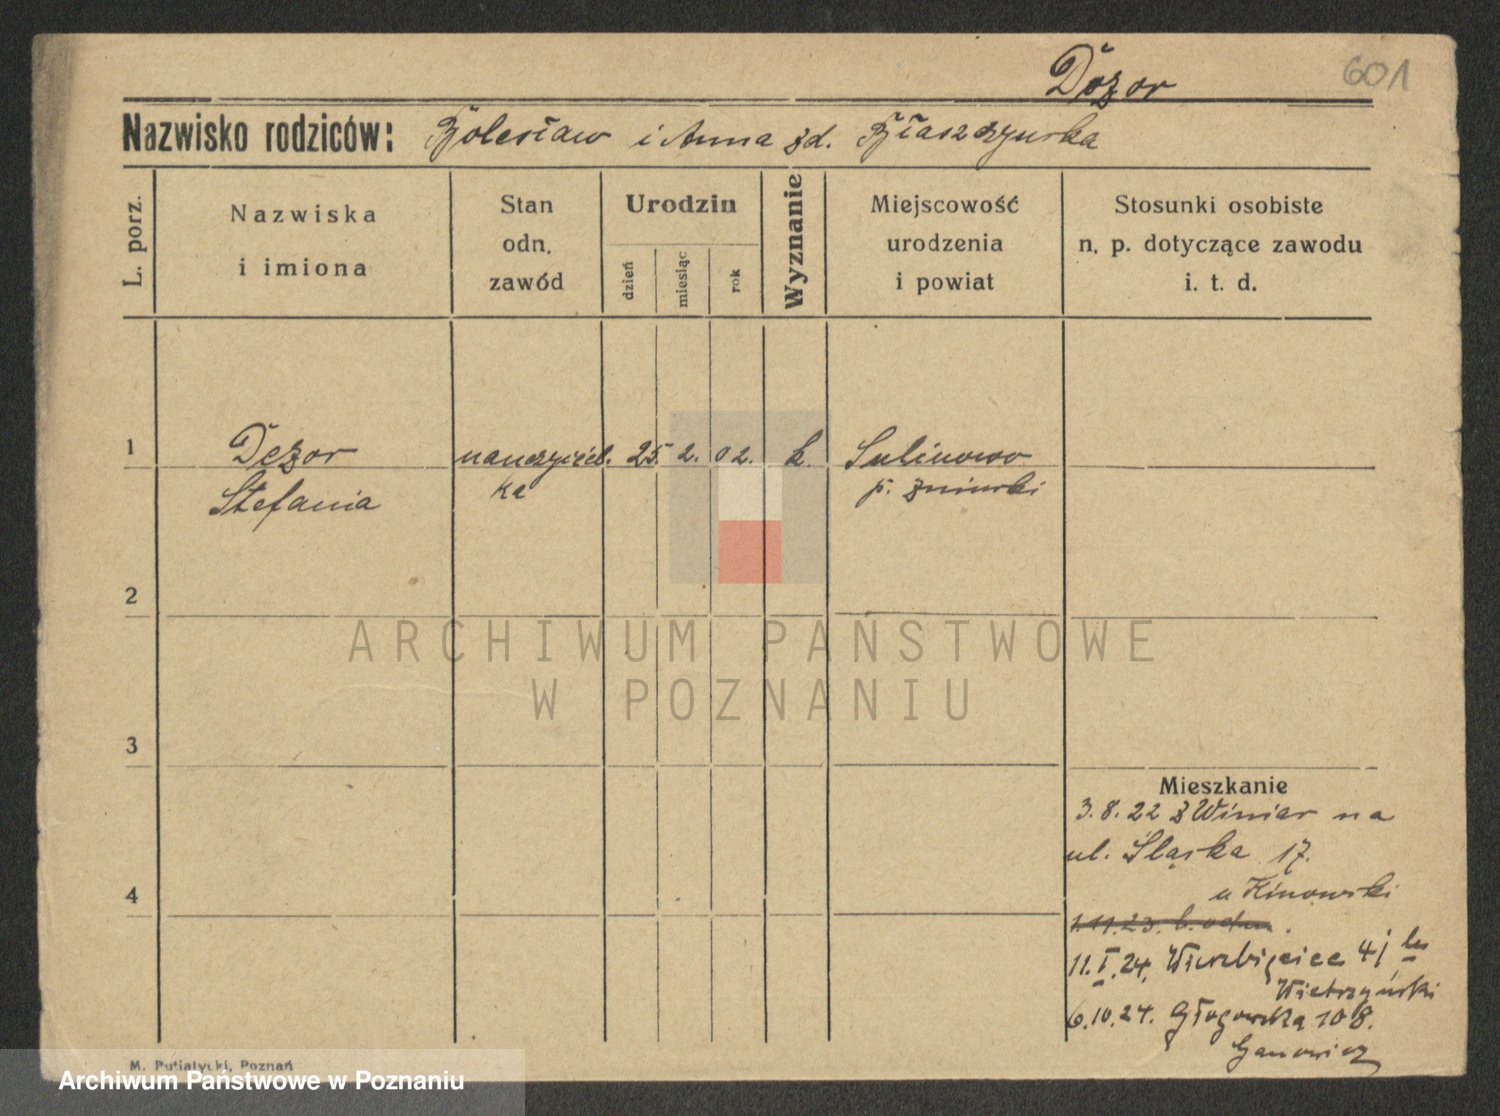 Dezor 601
Nazwisko rodziców: Bolesław i Anna zd. Błaszczyńska
L. porz.
Nazwiska
i imiona
Stan
odn.
zawód
Urodzin
dzień
miesiąc
rok
Wyznanie
Miejscowość
urodzenia
i powiat
Stosunki osobiste
n. p. dotyczące zawodu
i. t. d.
1 Dezor nauczyciel. 25. 2. 02. k. Sulinowo
Stefania ka p. żniński
2
ARCHIWUM PAŃSTWOWE
W POZNANIU
3
Mieszkanie
3. 8. 22 z Winiar na
ul. Śląska 17.
u Kinowski
4
1.11.23. b. odm.
11.I.24. Wierzbięcice 41
Wietrzyński
6.10.24. Głogowska 108.
Ganowicz
M. Putiatycki, Poznań
Archiwum Państwowe w Poznaniu